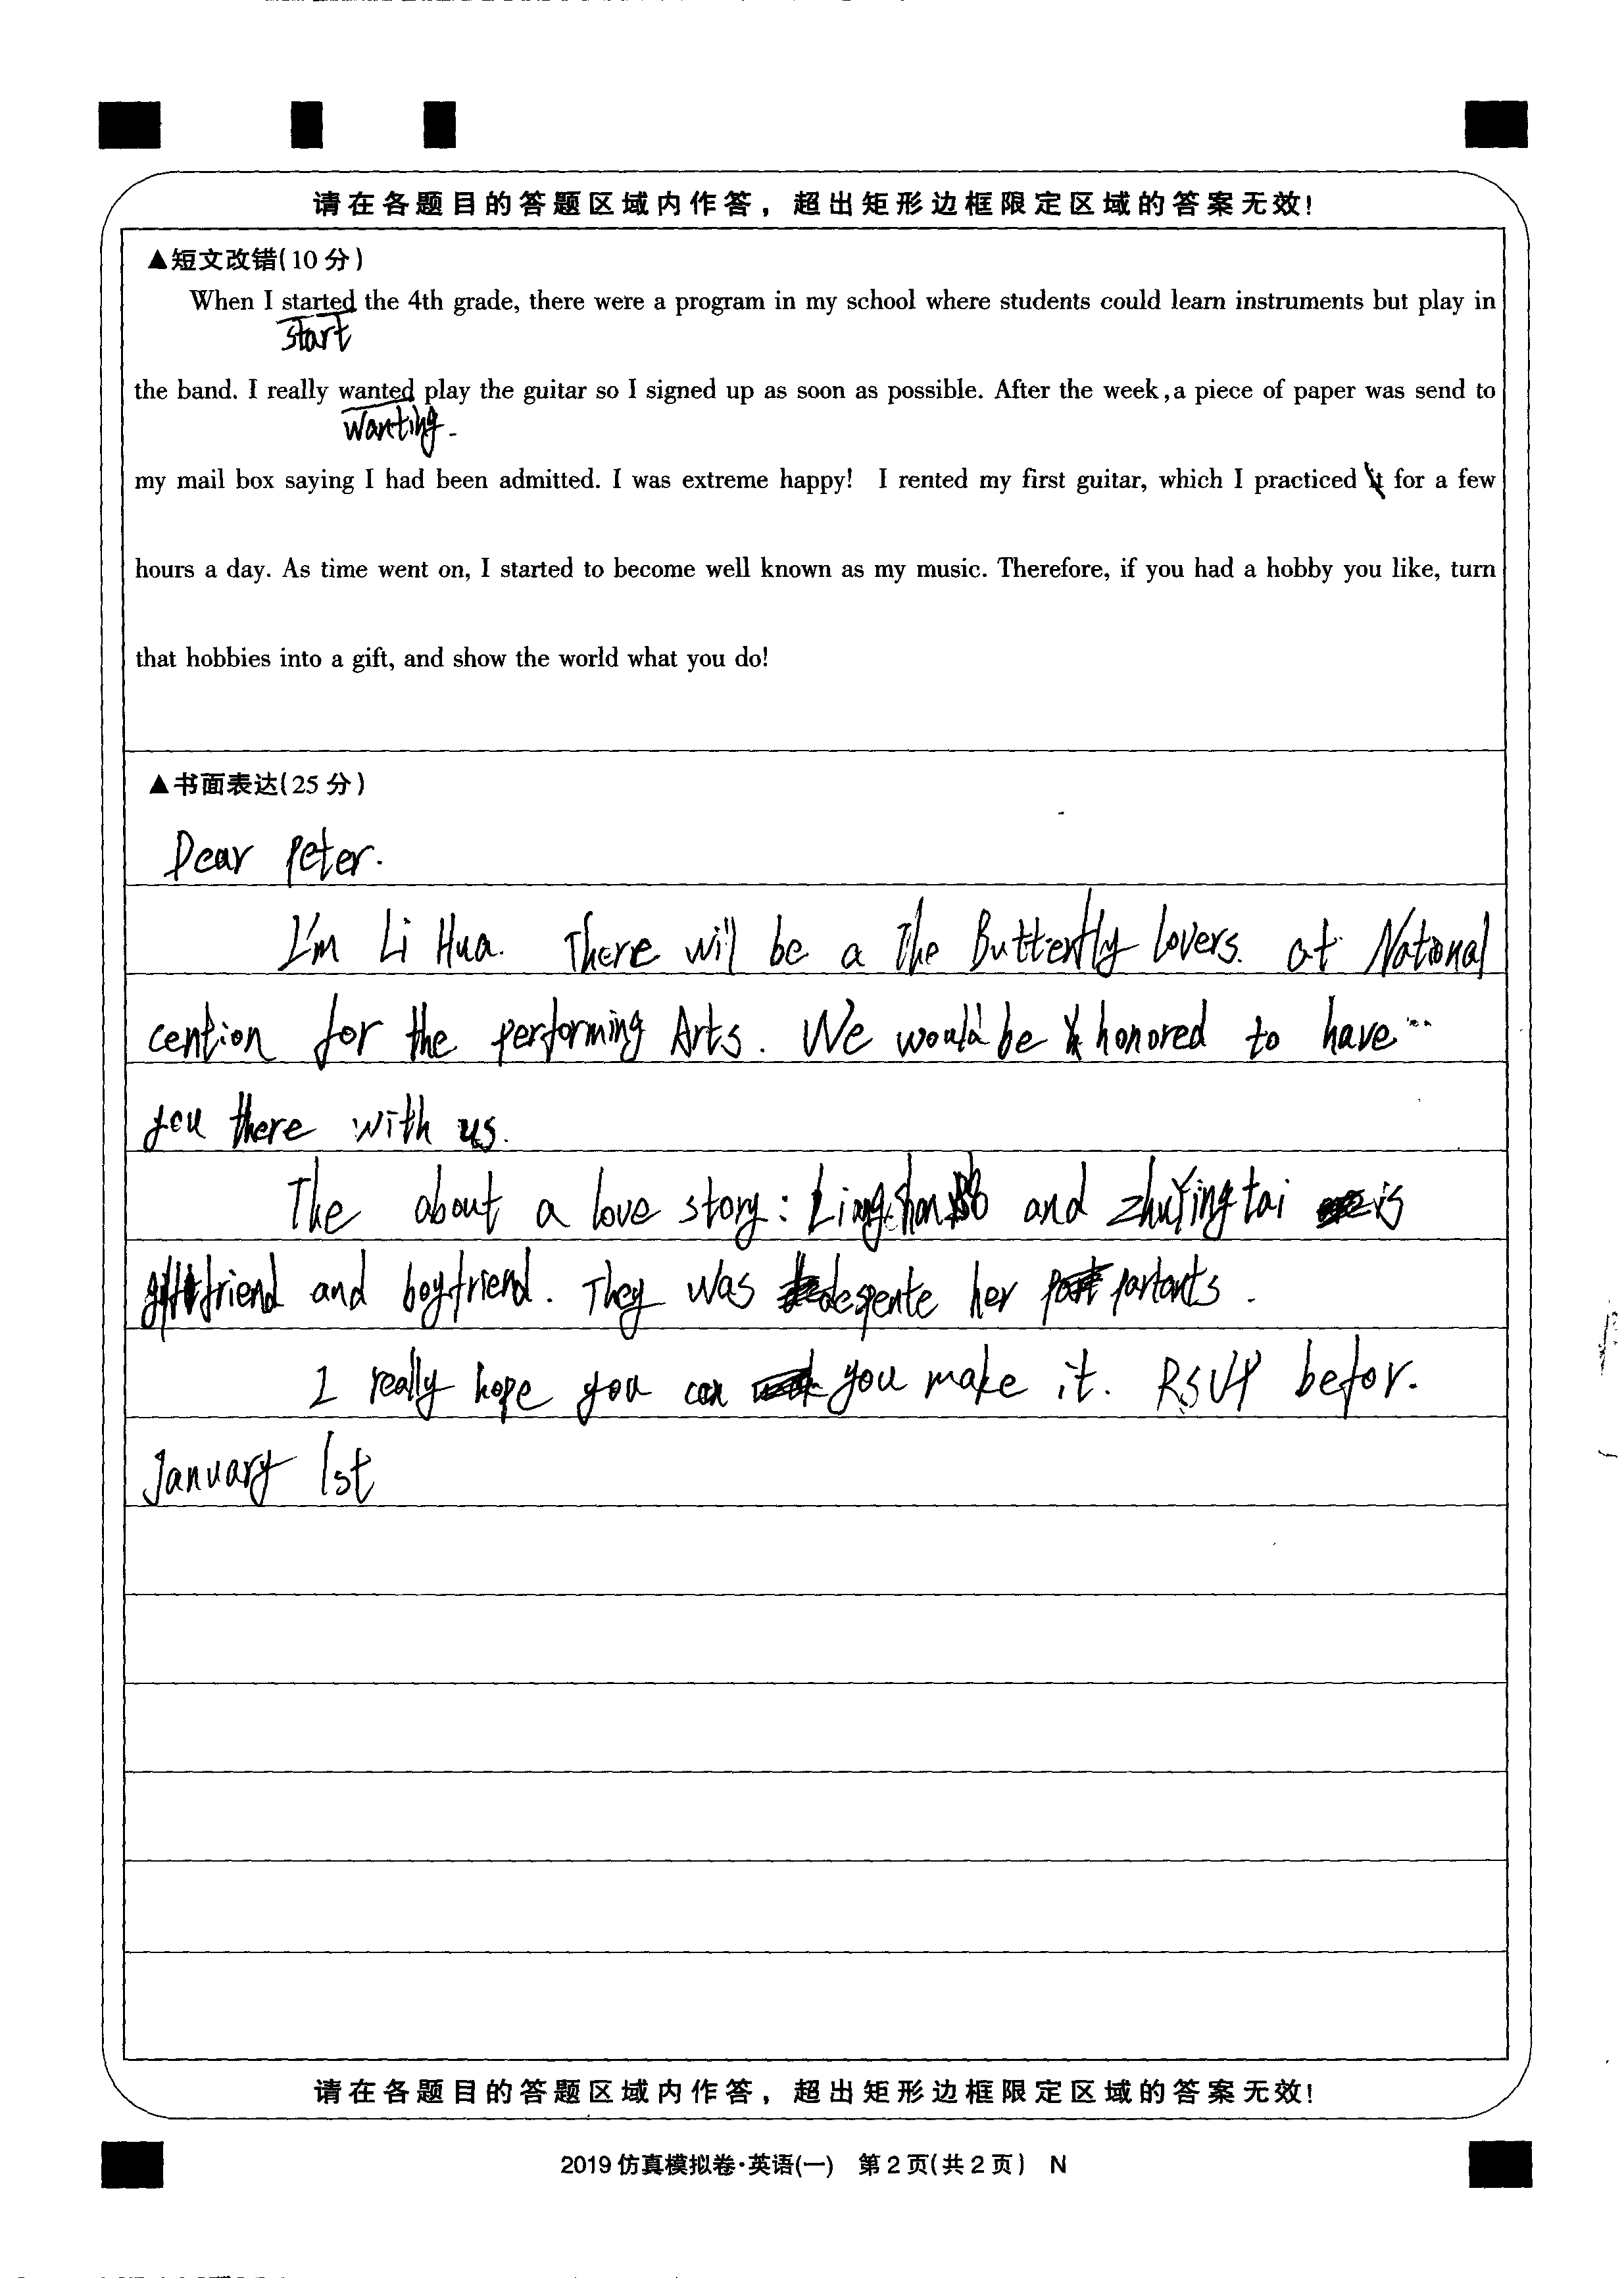 请在各题目的答题区域内作答，超出矩形边框限定区域的答案无效!
▲短文改错(10分)
When I started the 4th grade, there were a program in my school where students could learn instruments but play in
start
the band. I really wanted play the guitar so I signed up as soon as possible. After the week,a piece of paper was send to
wanting.
my mail box saying I had been admitted. I was extreme happy! I rented my first guitar, which I practiced it for a few
hours a day. As time went on, I started to become well known as my music. Therefore, if you had a hobby you like, turn
that hobbies into a gift, and show the world what you do!
▲书面表达(25分)
Dear Peter.
I'm Li Hua. There will be a The Butterfly Lovers. at National
cention for the performing Arts. We would be honored to have
you there with us.
The about a love story: and zhuYingtai is
friend and boyfriend. They was her
I really hope you can you make it. RSVP befor.
January 1st
请在各题目的答题区域内作答，超出矩形边框限定区域的答案无效!
2019仿真模拟卷·英语(一) 第2页(共2页) N